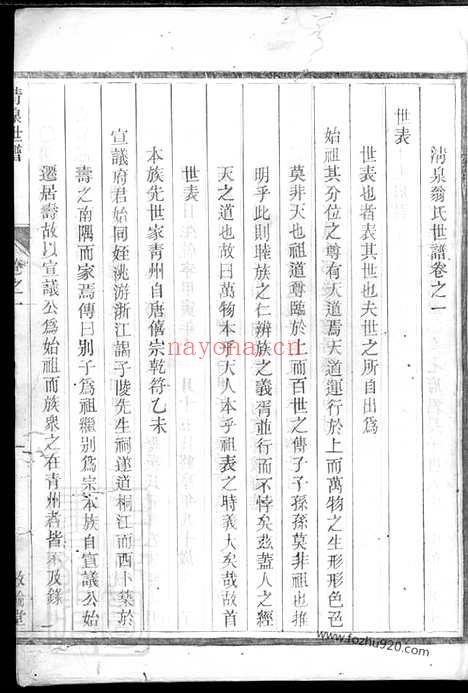 清泉翁氏世譜卷之一
世表
世表也者表其世也夫世之所自出為
始祖其分位之尊有天道焉天道運行於上而萬物之生形形色色
莫非天也祖道尊臨於上而百世之傳子子孫孫莫非祖也推
明乎此則睦族之仁辨族之義胥並行而不悖矣茲蓋人之經
天之道也故曰萬物本乎天人本乎祖表之時義大矣哉故首
世表
本族先世家青州自唐僖宗乾符乙未
宣議府君始同姪洮游浙江謁子陵先生祠遂道桐江而西卜築於
壽之南隅而家焉傳曰別子為祖繼別為宗本族自宣議公始
遷居壽故以宣議公為始祖而族眾之在青州者皆不及錄
清泉世譜
卷之一
一
敘倫堂
nayona.cn
www.fozhu920.com